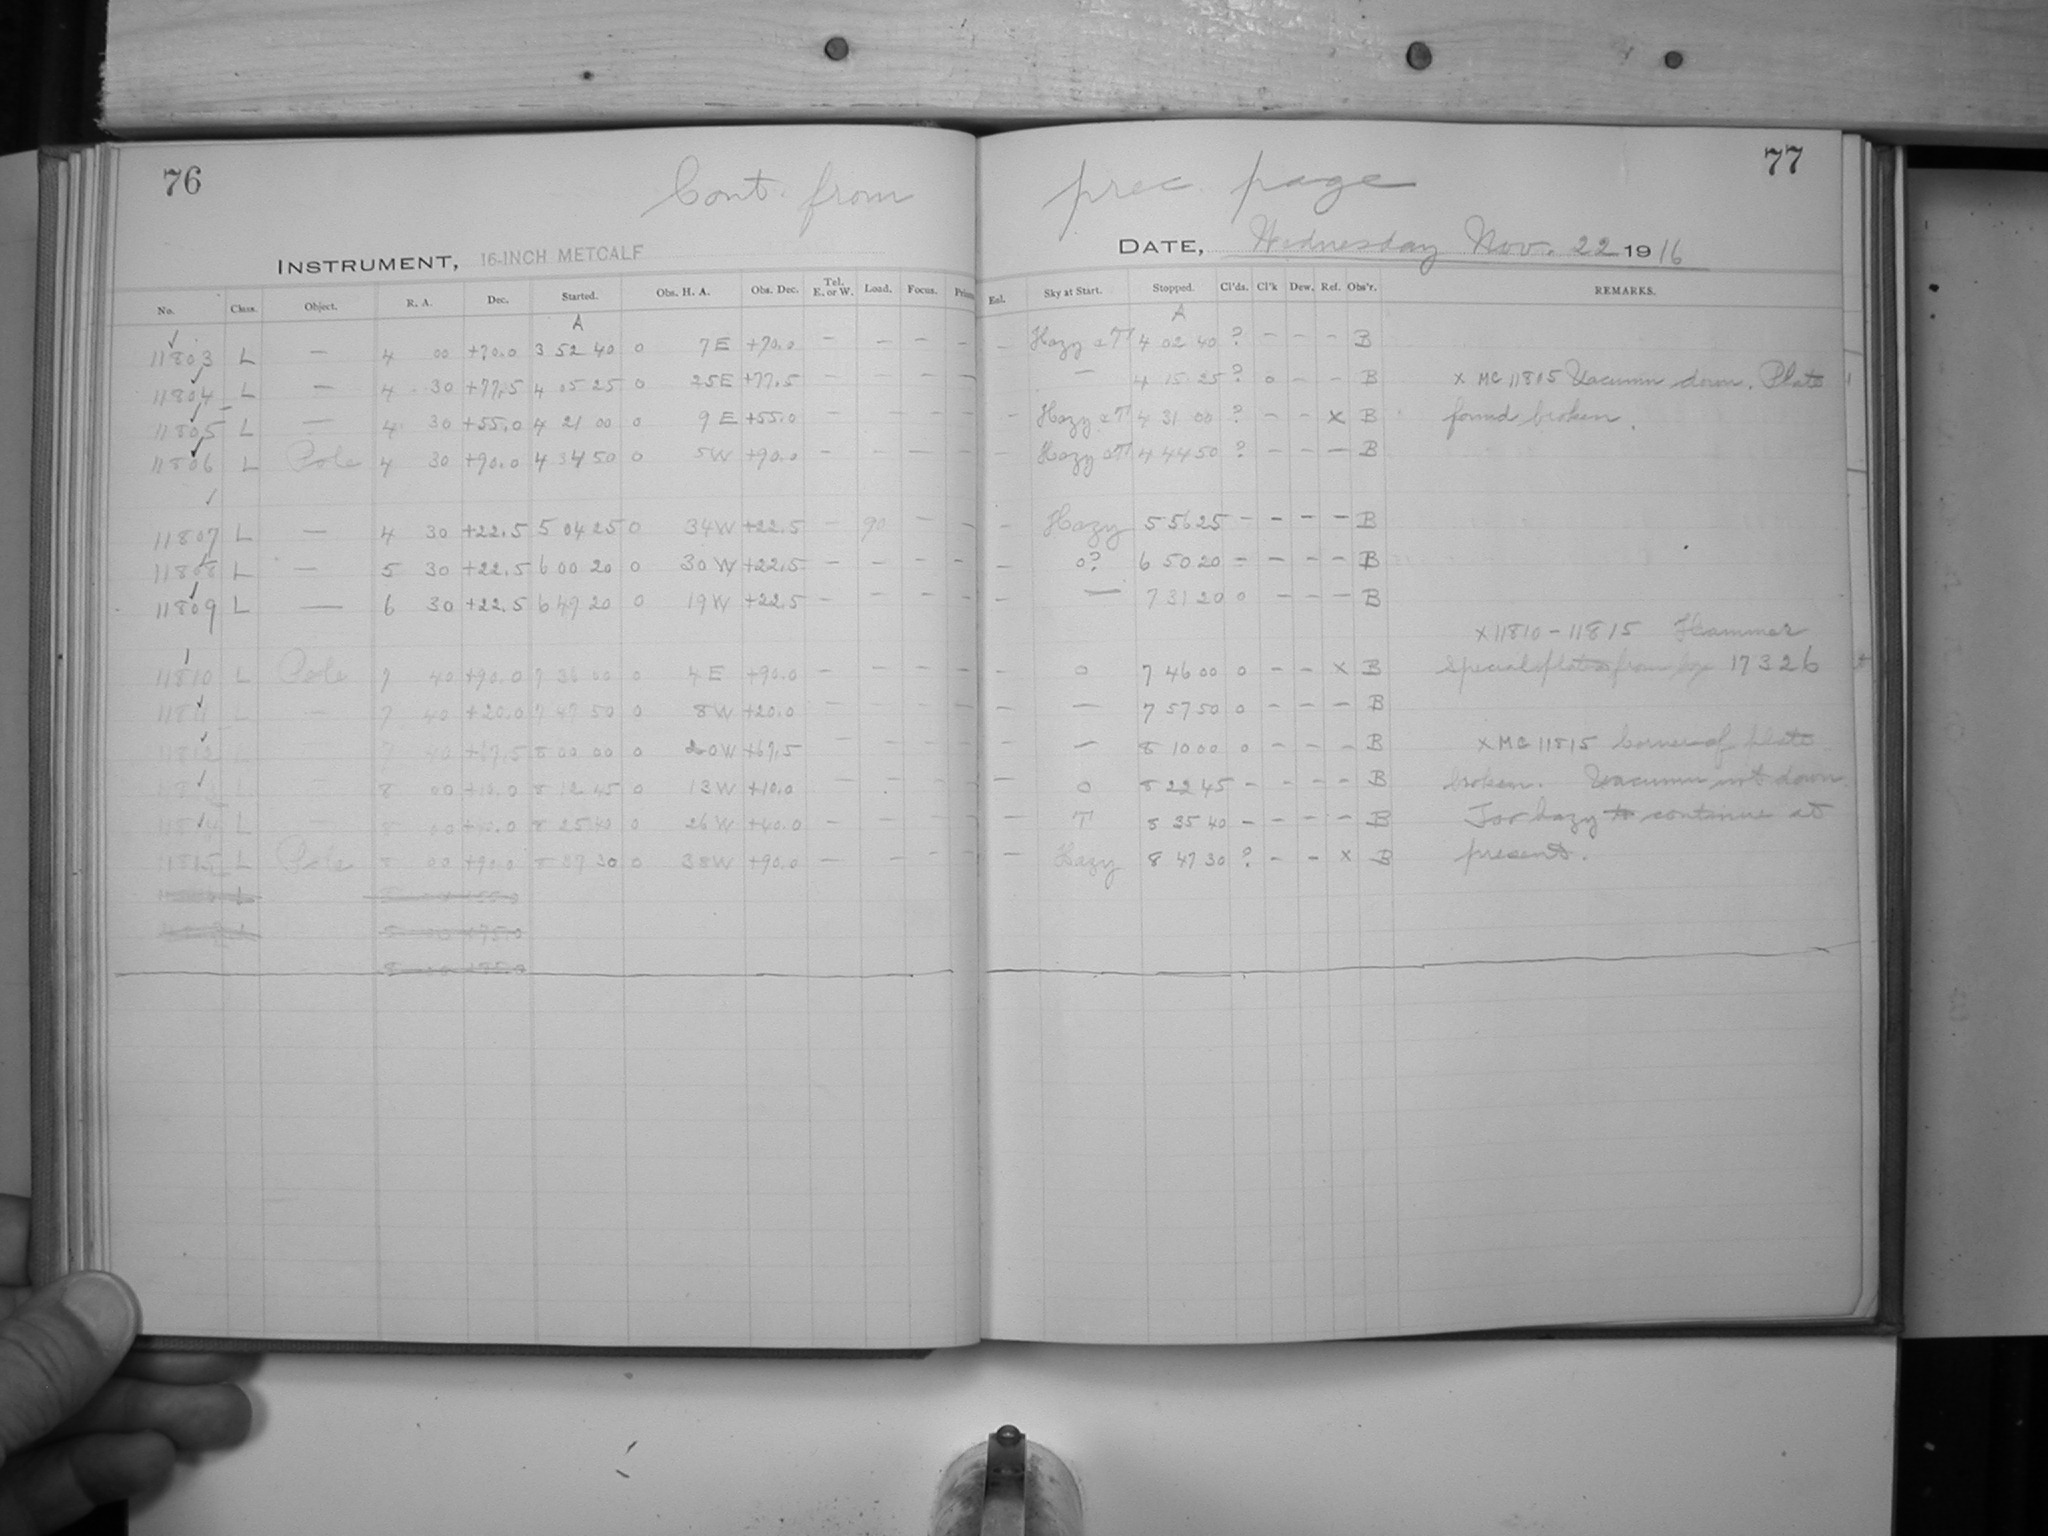 76
77
Cont. from prec. page
INSTRUMENT, 16-INCH METCALF
DATE, Wednesday Nov. 22 1916
No. Class. Object. R. A. Dec. Started. Obs. H. A. Obs. Dec. Tel. E. or W. Load. Focus. Eal. Sky at Start. Stopped. Cl'ds. Cl'k Dew. Ref. Obs'r. REMARKS.
A A
11803 L — 4 00 +70.0 3 52 40 0 7 E +70.0 — — — — — Hazy aT 4 02 40 ? — — — B
11804 L — 4 30 +77.5 4 05 25 0 25E +77.5 — — — — — 4 15 25 ? 0 — — B x MC 11805 Vacumn down. Plate
11805 L — 4 30 +55.0 4 21 00 0 9 E +55.0 — — — — — Hazy aT 4 31 00 ? — — x B found broken.
11806 L Pole 4 30 +90.0 4 34 50 0 5W +90.0 — — — — — Hazy aT 4 44 50 ? — — — B
11807 L — 4 30 +22.5 5 04 25 0 34W +22.5 — 90 — — — Hazy 5 56 25 — — — — B
11808 L — 5 30 +22.5 6 00 20 0 30 W +22.5 — — — — — 0? 6 50 20 — — — — B
11809 L — 6 30 +22.5 6 49 20 0 19W +22.5 — — — — — — 7 31 20 0 — — — B
x 11810 - 11815 Hammer
11810 L Pole 7 40 +90.0 7 36 00 0 4 E +90.0 — — — — — 0 7 46 00 0 — — x B Special plates from 17326
11811 L — 7 40 +20.0 7 47 50 0 8W +20.0 — — — — — — 7 57 50 0 — — — B
11812 L 7 40 +67.5 8 00 00 0 20W +67.5 — — — — — — 8 10 00 0 — — — B x MC 11815 Corner of plate
L 8 00 +10.0 8 12 45 0 13W +10.0 — — — — — 0 8 22 45 — — — — B broken. Vacumn not down
11814 L — 8 00 +40.0 8 25 40 0 26 W +40.0 — — — — — T 8 35 40 — — — — B Too hazy to continue at
11815 L Pole 8 00 +90.0 8 37 30 0 38W +90.0 — — — — — Hazy 8 47 30 ? — — x B present.
L
8 00 +75.0
8